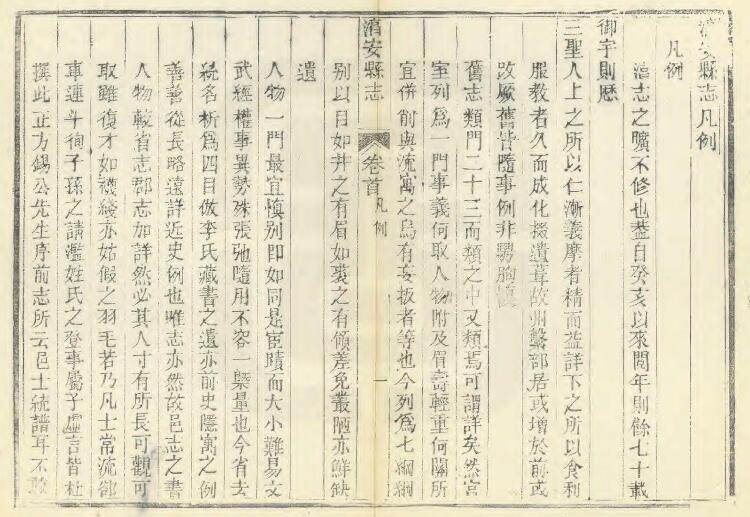 淯安縣志凡例
凡例
志之曠不修也蓋自癸亥以來閱年則餘七十載
御宇則歷
三聖人上之所以仁漸義摩者精而益詳下之所以食利
服教者久而成化掇遺葺故州繫部居或增於前或
改厥舊皆隨事例非騁胸
舊志類門二十三而類之中又類焉可謂詳矣然宮
室列爲一門事義何取人物附及眉壽輕重何關所
宜併前與流寓之烏有妄扳者等也今列爲七綱綱
安縣志
卷首
凡例
一
別以目如井之有眉如裘之有領差免叢陋亦鮮缺
遺
人物一門最宜愼別即如同是宦蹟而大小難易文
武經權事異勢殊張弛隨用不容一槩量也今省去
統名析爲四目倣李氏藏書之遺亦前史隱寓之例
善善從長略遠詳近史例也唯志亦然故邑志之書
人物較省志郡志加詳然必其人寸有所長可觀可
取雖復才如襪綫亦姑假之羽毛若乃凡士常流卻
車連斗徇子孫之請濫姓氏之登事屬子虛言皆杜
撰此正方錫公先生序前志所云邑士統譜耳不敢